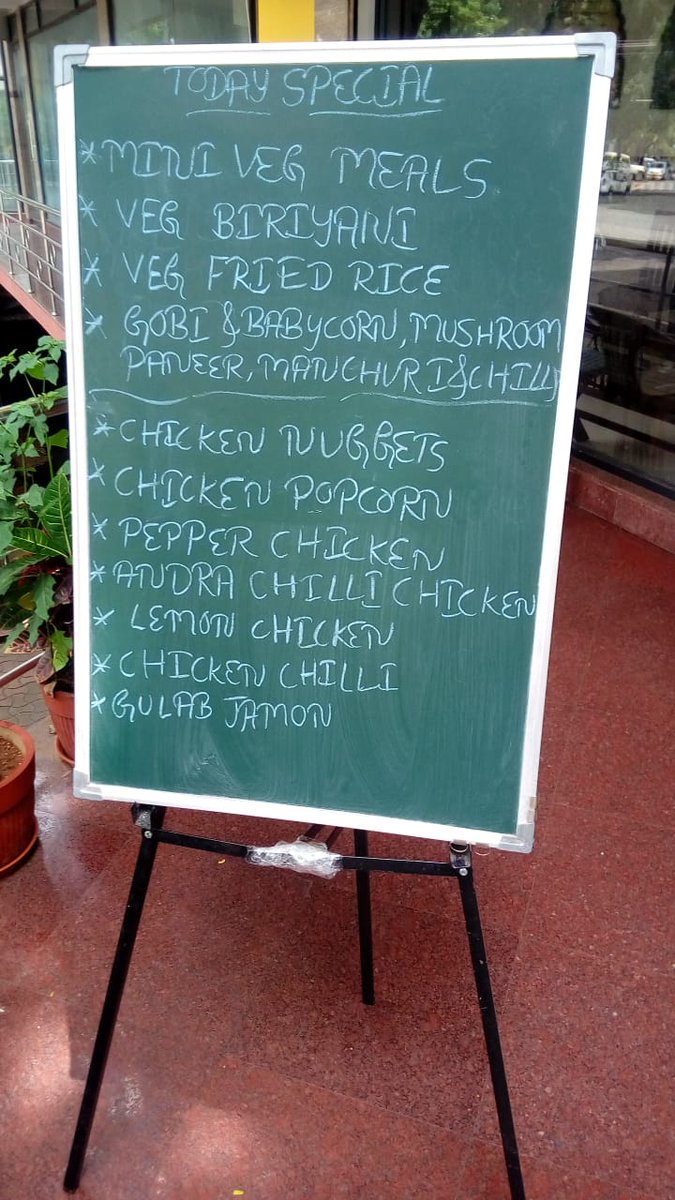 TODAY SPECIAL
* MINI VEG MEALS
* VEG BIRIYANI
* VEG FRIED RICE
* GOBI & BABYCORN, MUSHROOM
PANEER, MANCHURI & CHILLY
* CHICKEN NUGGETS
* CHICKEN POPCORN
* PEPPER CHICKEN
* ANDRA CHILLI CHICKEN
* LEMON CHICKEN
* CHICKEN CHILLI
* GULAB JAMON